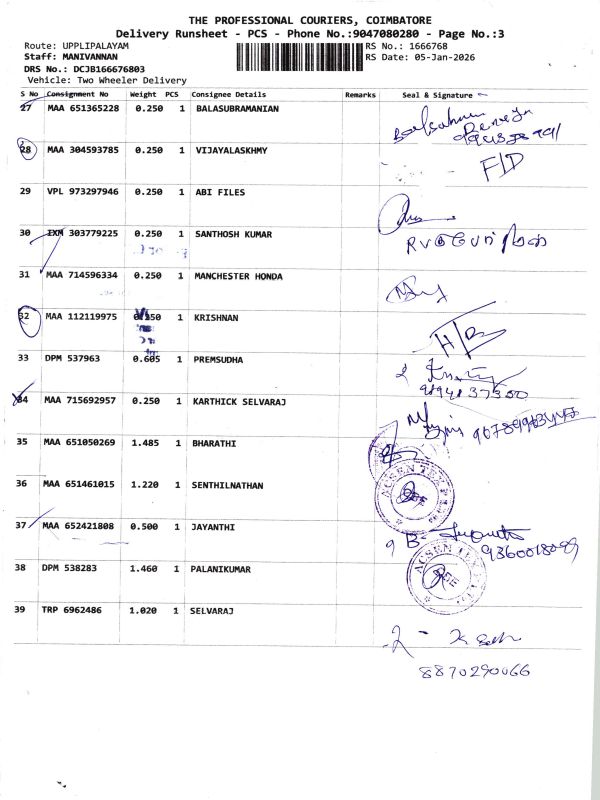 THE PROFESSIONAL COURIERS, COIMBATORE
Delivery Runsheet - PCS - Phone No.:9047080280 - Page No.:3
Route: UPPLIPALAYAM
RS No.: 1666768
Staff: MANIVANNAN
RS Date: 05-Jan-2026
DRS No.: DCJB166676803
Vehicle: Two Wheeler Delivery
S No Consignment No Weight PCS Consignee Details Remarks Seal & Signature
27 MAA 651365228 0.250 1 BALASUBRAMANIAN
28 MAA 304593785 0.250 1 VIJAYALASKHMY
F/D
29 VPL 973297946 0.250 1 ABI FILES
30 IXM 303779225 0.250 1 SANTHOSH KUMAR
31 MAA 714596334 0.250 1 MANCHESTER HONDA
32 MAA 112119975 0.250 1 KRISHNAN
33 DPM 537963 0.605 1 PREMSUDHA
34 MAA 715692957 0.250 1 KARTHICK SELVARAJ
35 MAA 651050269 1.485 1 BHARATHI
36 MAA 651461015 1.220 1 SENTHILNATHAN
ACSEN TEX
37 MAA 652421808 0.500 1 JAYANTHI
9360018099
38 DPM 538283 1.460 1 PALANIKUMAR
ACSEN TEX
39 TRP 6962486 1.020 1 SELVARAJ
8870290066